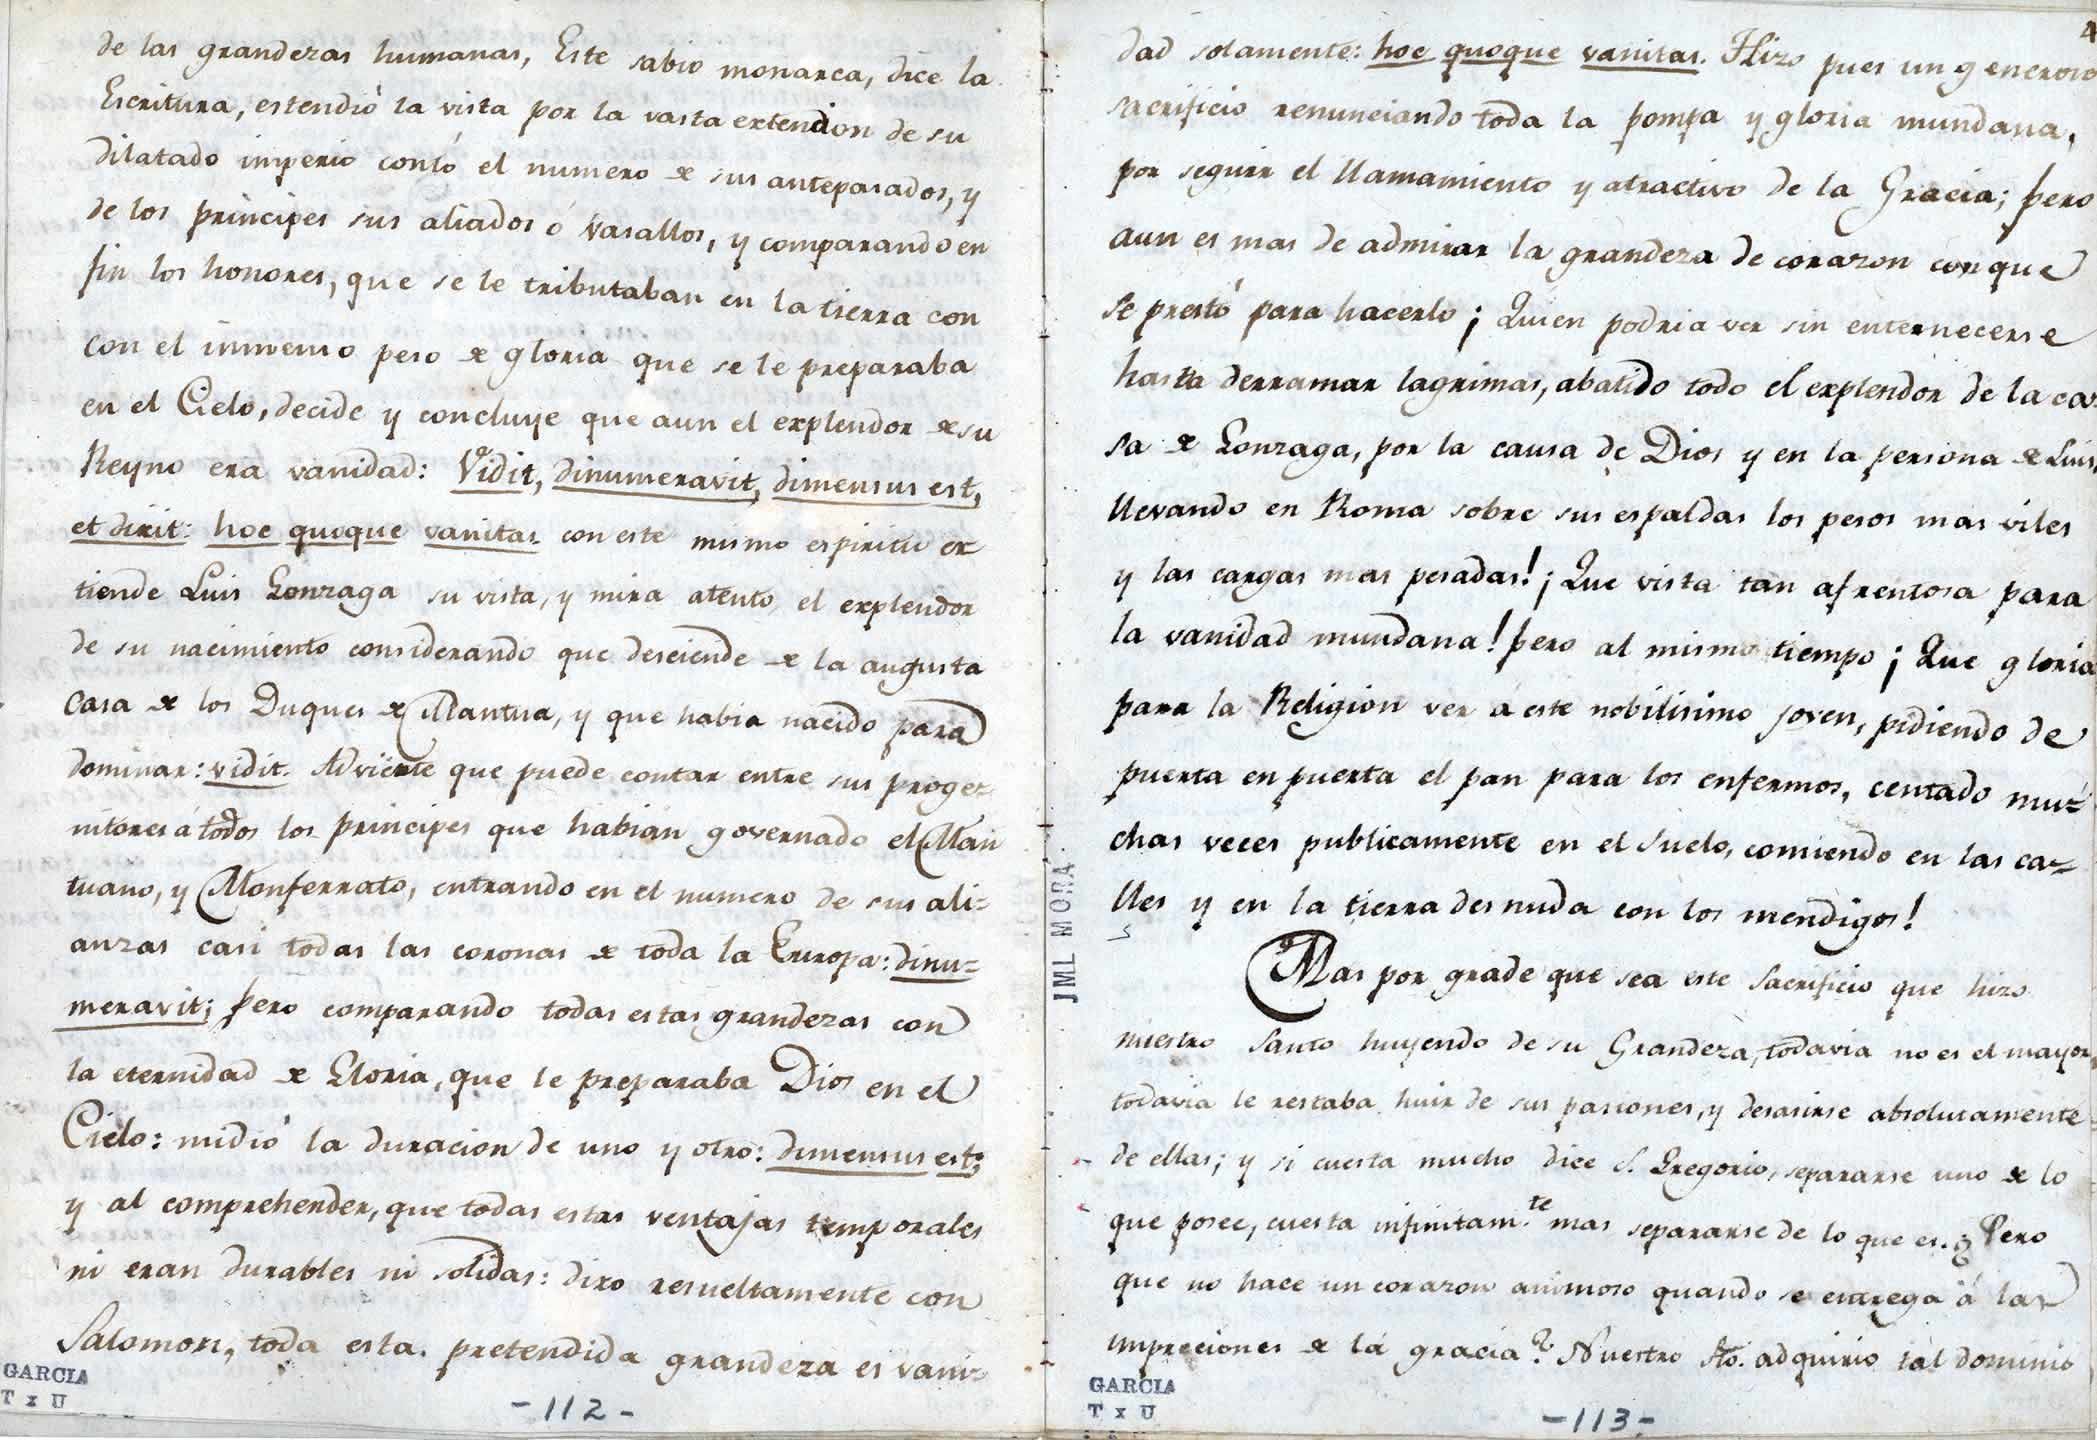 de las grandezas humanas, Este sabio monarca, dice la
Escritura, estendió la vista por la vasta extencion de su
dilatado imperio contó el numero de sus antepasados, y
de los principes sus aliados ó vasallos, y comparando en
fin los honores, que se le tributaban en la tierra con
con el inmenso peso de gloria que se le preparaba
en el Cielo, decide y concluye que aun el explendor de su
Reyno era vanidad: Vidit, dinumeravit, dimensus est,
et dixit: hoc quoque vanitas. con este mismo espiritu ex
tiende Luis Gonzaga su vista, y mira atento, el explendor
de su nacimiento considerando que desciende de la augusta
casa de los Duques de Mantua, y que habia nacido para
dominar: vidit. Advierte que puede contar entre sus proge=
nitores á todos los principes que habian governado el Man
tuano, y Monferrato, entrando en el numero de sus ali=
anzas casi todas las coronas de toda la Europa: dinu=
meravit; pero comparando todas estas grandezas con
la eternidad de Gloria, que le preparaba Dios en el
Cielo: midió la duracion de uno y otro: dimensus est;
y al comprehender, que todas estas ventajas temporales
ni eran durables ni solidas: dixo resueltamente con
Salomon, toda esta. pretendida grandeza es vani=
GARCIA
T x U
-112-
4
dad solamente: hoc quoque vanitas. Hizo pues un generoso
sacrificio renunciando toda la pompa y gloria mundana,
por seguir el llamamiento y atractivo de la Gracia; pero
aun es mas de admirar la grandeza de corazon con que
se prestó para hacerlo ¡ Quien podria ver sin enternecerse
hasta derramar lagrimas, abatido todo el explendor de la ca
sa de Gonzaga, por la causa de Dios y en la persona de Luis,
llevando en Roma sobre sus espaldas los pesos mas viles
y las cargas mas pesadas! ¡ Que vista tan afrentosa para
la vanidad mundana! pero al mismo tiempo ¡ Que gloria
para la Religion ver á este nobilisimo joven, pidiendo de
puerta en puerta el pan para los enfermos, centado mu=
chas veces publicamente en el suelo, comiendo en las ca=
lles y en la tierra desnuda con los mendigos!
JML MORA
Mas por grade que sea este sacrificio que hizo
nuestro Santo huyendo de su Grandeza, todavia no es el mayor,
todavia le restaba huir de sus pasiones, y desasirse absolutamente
de ellas; y si cuesta mucho dice S. Gregorio, separarse uno de lo
que posee, cuesta infinitam.te mas separarse de lo que es. ¿ Pero
que no hace un corazon animoso quando se entrega á las
impreciones de la gracia? Nuestro Sto. adquirio tal dominio
GARCIA
T x U
-113-